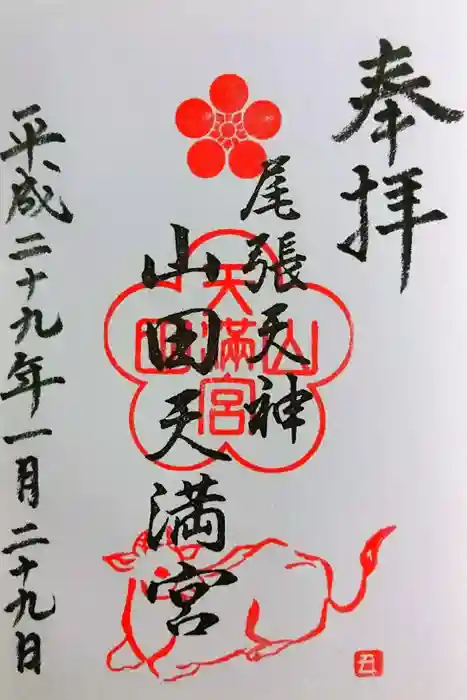 奉拝
尾張天神
山田天満宮
山田天満宮
平成二十九年一月二十九日
丑